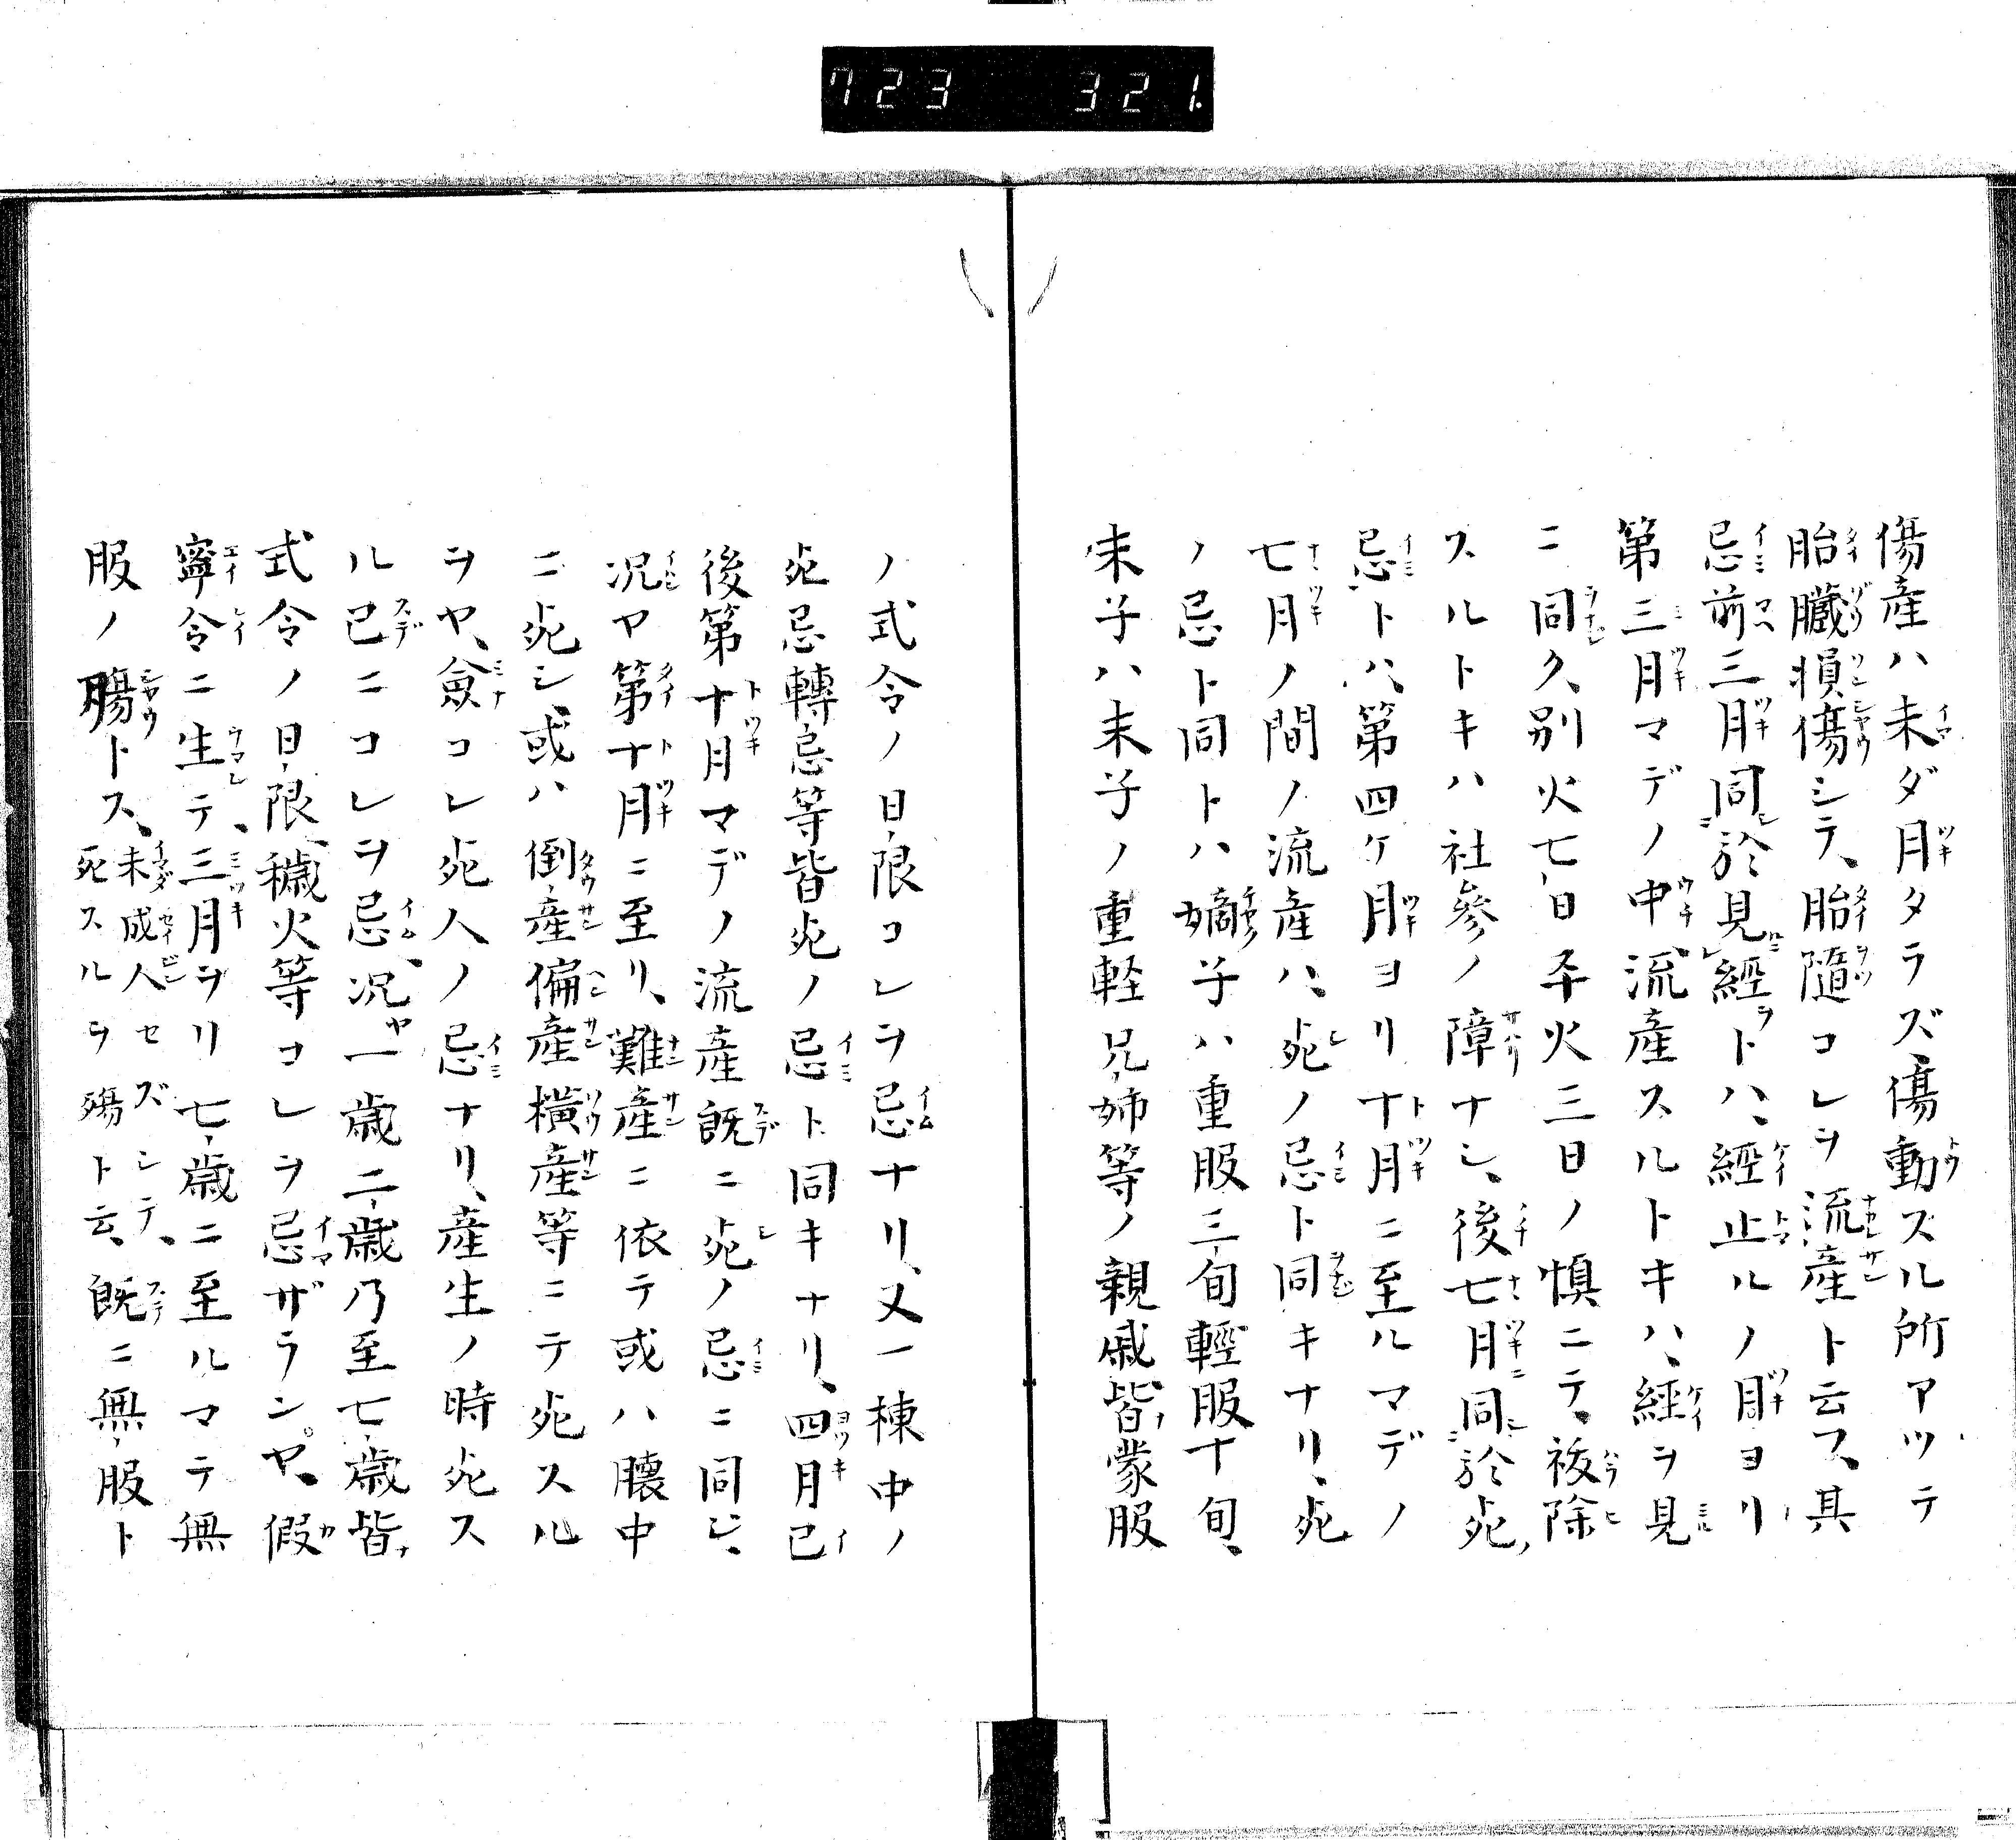 723 321.
傷産ハ未ダ月タラズ、傷動スル所アツテ
胎臓損傷シテ、胎隨コレヲ流産ト云フ、其
忌前三月同於見經トハ、經止ルノ月ヨリ
第三月マデノ中流産スルトキハ、經ヲ見
ニ同久別火七日平火三日ノ慎ニテ、祓除
スルトキハ社參ノ障ナシ、後七月同於死
忌トハ、第四ケ月ヨリ十月ニ至ルマデノ
七月ノ間ノ流産ハ、死ノ忌ト同キナリ、死
ノ忌ト同トハ嫡子ハ重服三旬輕服十旬、
末子ハ末子ノ重軽兄姉等ノ親戚皆蒙服
ノ式令ノ日限コレヲ忌ナリ、又一棟中ノ
死忌轉忌等皆死ノ忌ト同キナリ、四月已
後第十月マデノ流産既ニ死ノ忌ニ同ジ、
况ヤ第十月ニ至リ、難産ニ依テ或ハ腹中
ニ死シ、或ハ倒産偏産横産等ニテ死スル
ヲヤ、僉コレ死人ノ忌ナリ、産生ノ時死ス
ル已ニコレヲ忌、况一歳二歳乃至七歳皆
式令ノ日限、穢火等コレヲ忌ザランヤ、假
寧令ニ生テ、三月ヨリ七歳ニ至ルマテ無
服ノ殤トス、未成人セズシテ、
死スルヲ殤ト云、既ニ無服ト